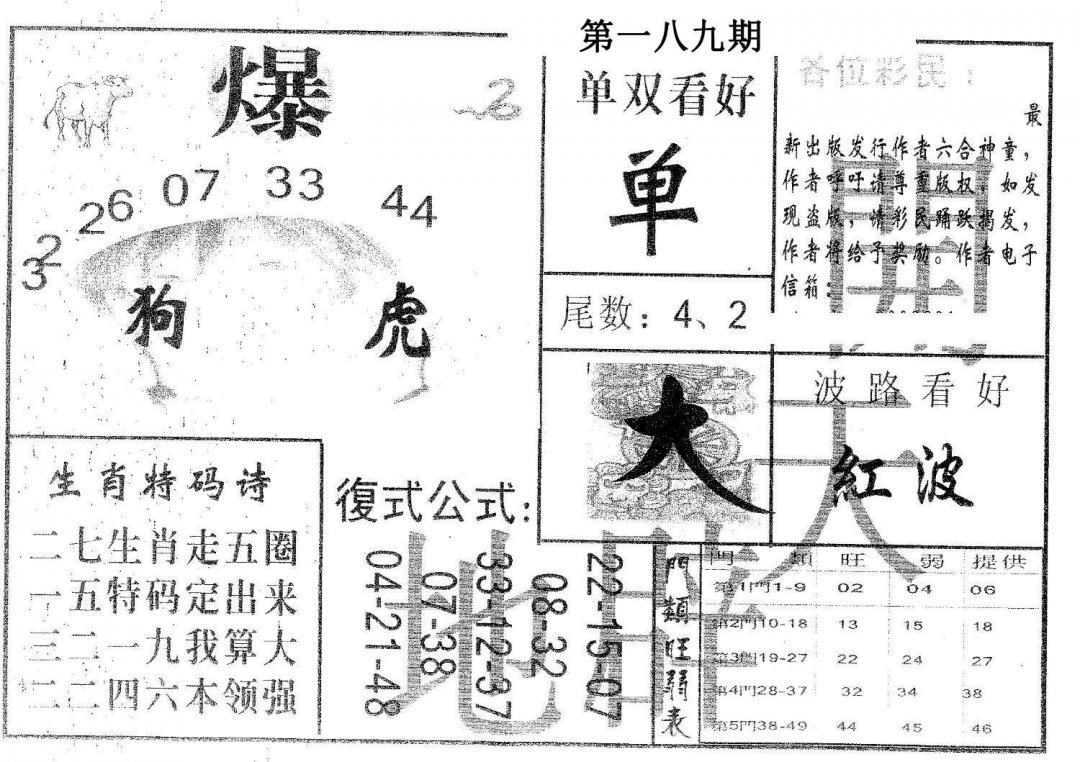 第一八九期
爆
26
07
33
44
23
狗
虎
单双看好
单
尾数：4、2
各位彩民：
最
新出版发行作者六合神童，
作者呼吁请尊重版权，如发
现盗版，情彩民踊跃揭发，
作者将给予奖励。作者电子
信箱：
大
波路看好
紅波
生肖特码诗
二七生肖走五圈
一五特码定出来
三二一九我算大
二二四六本领强
復式公式：
04-21-48
07-38
33-12-37
08-32
22-15-07
門類旺弱表
門 類 旺 弱 提供
第1門1-9 02 04 06
第2門10-18 13 15 18
第3門19-27 22 24 27
第4門28-37 32 34 38
第5門38-49 44 45 46